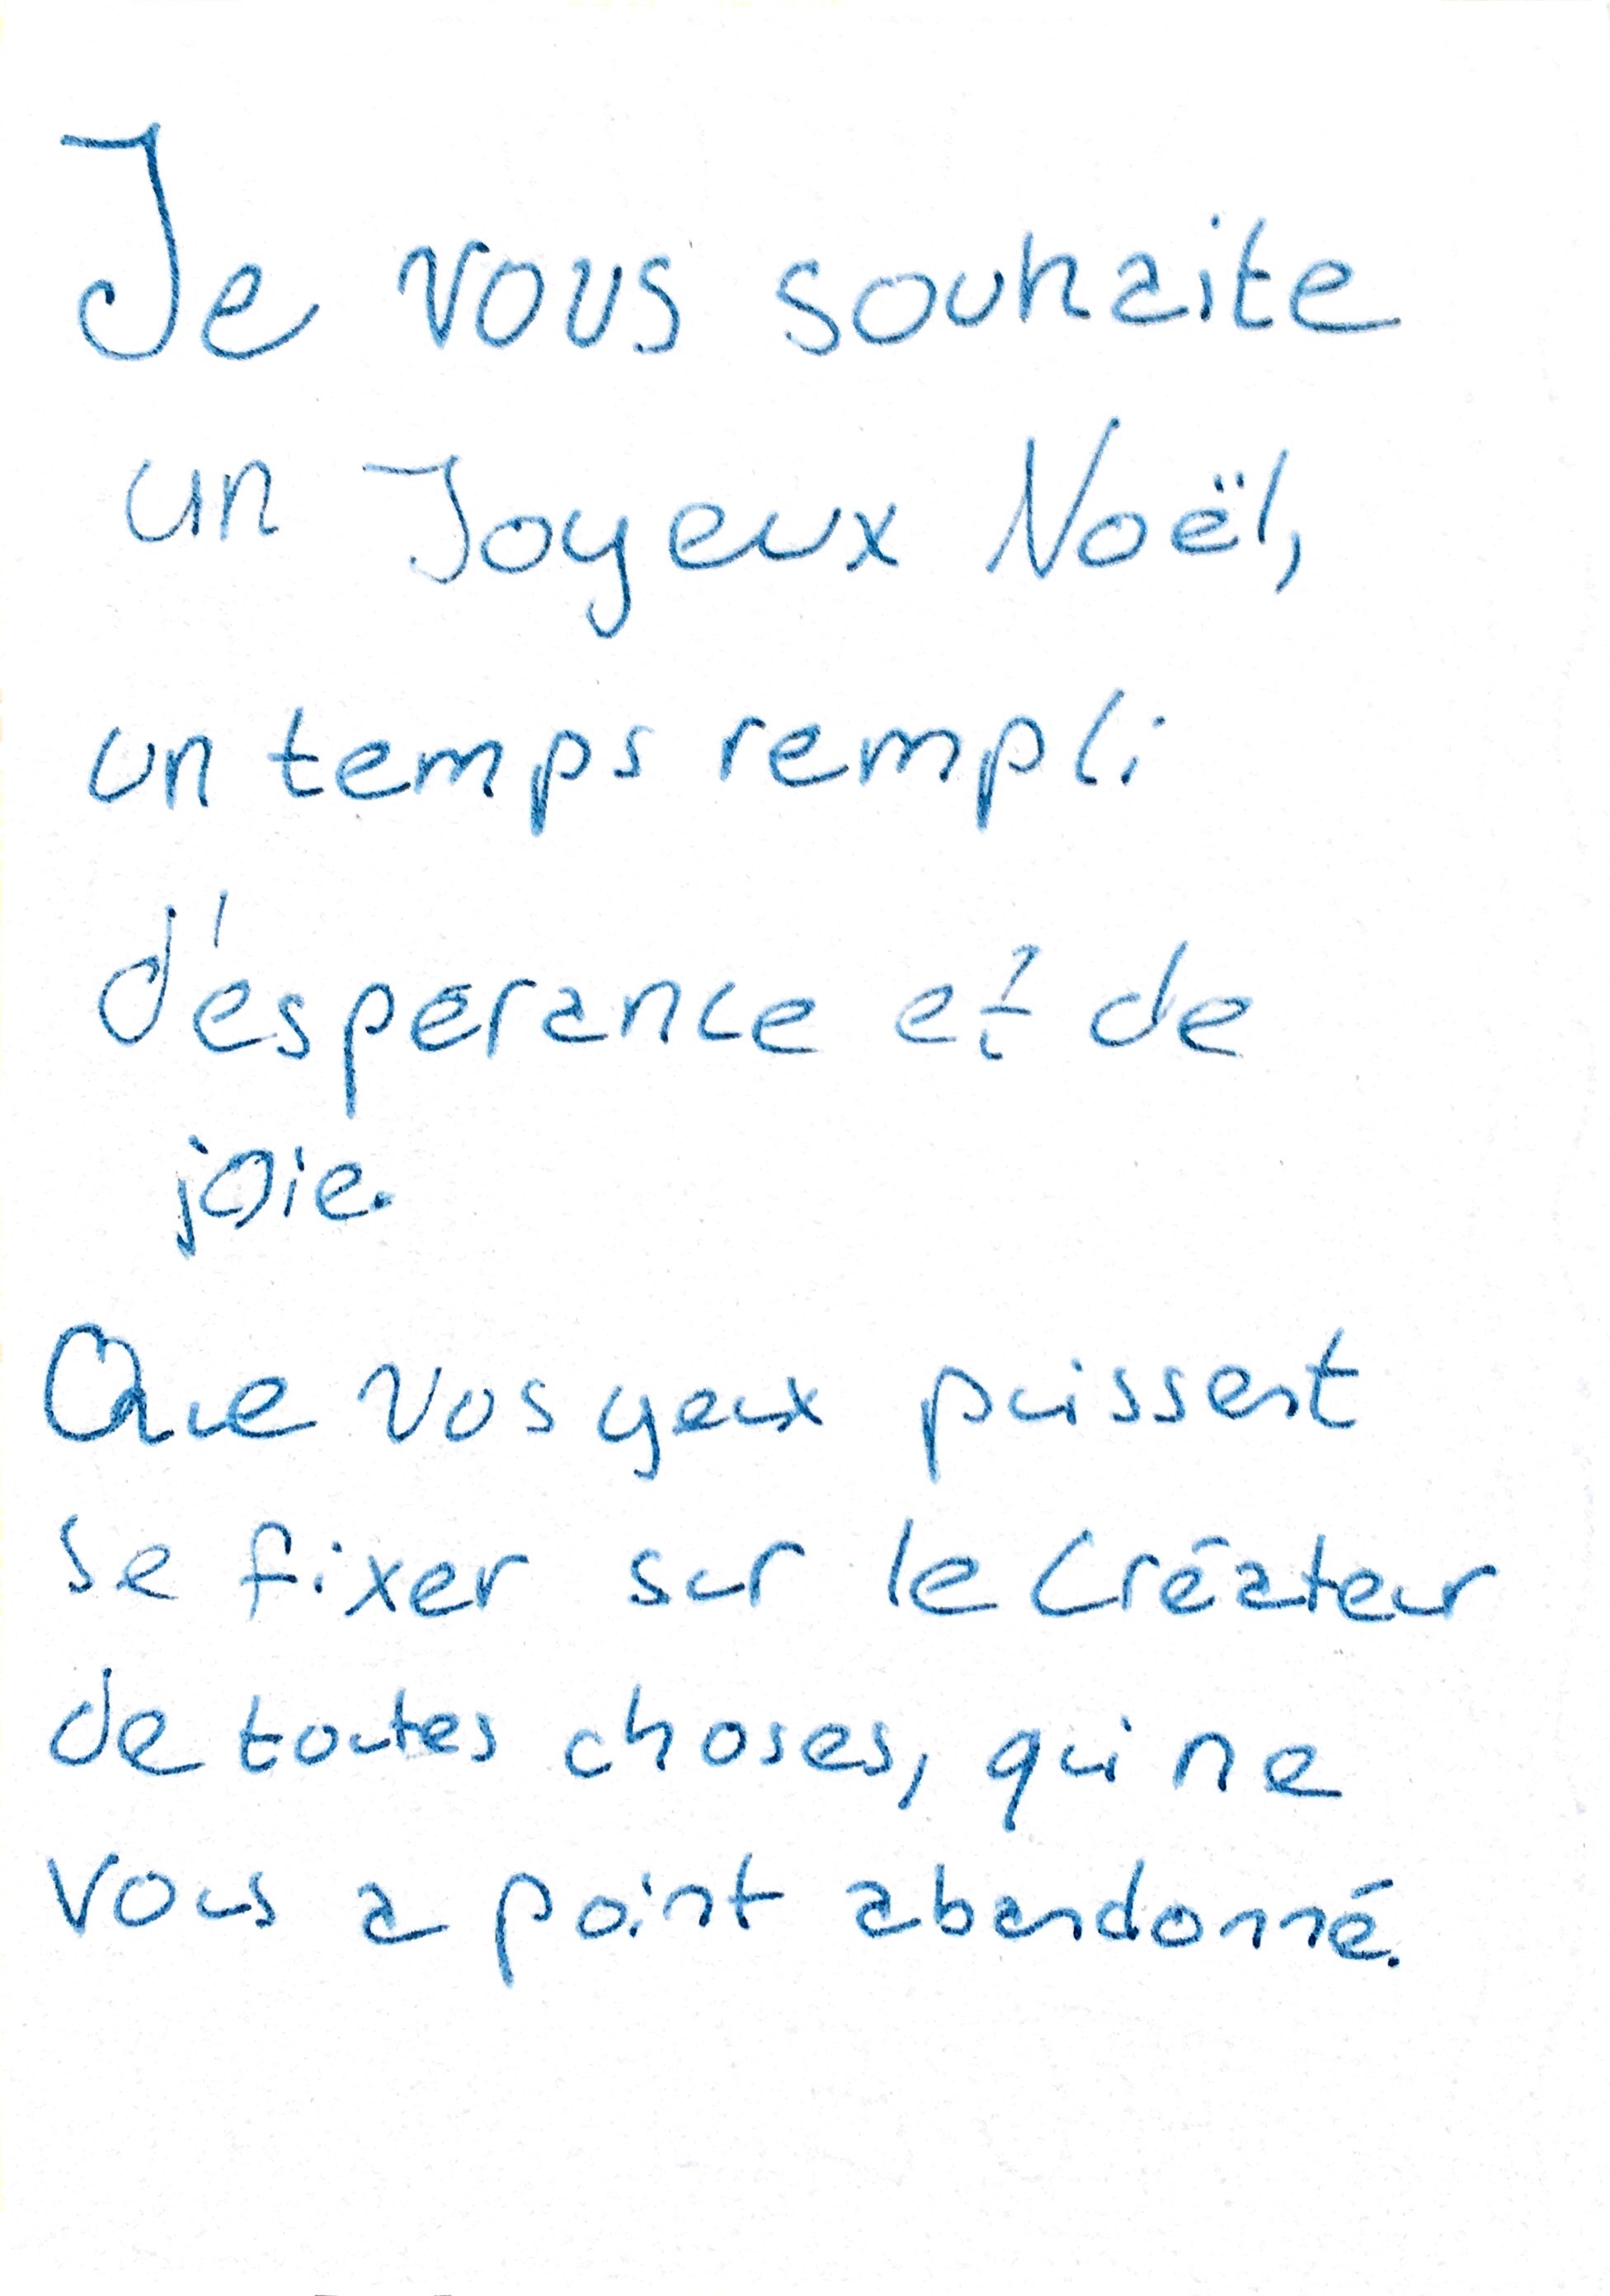 Je vous souhaite
un Joyeux Noël,
un temps rempli
d'espérance et de
joie.
Que vos yeux puissent
se fixer sur le Créateur
de toutes choses, qui ne
vous a point abandonné.